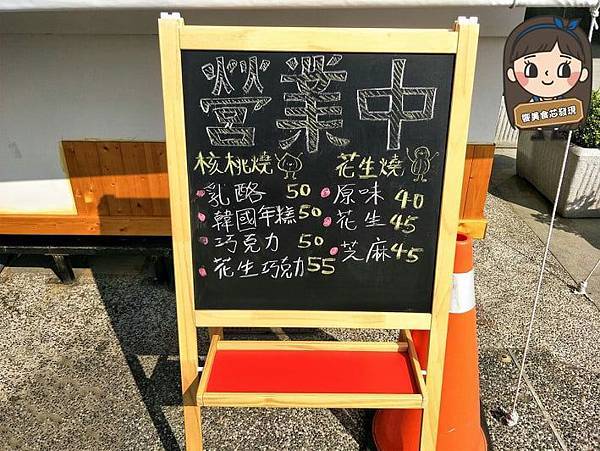 營業中
核桃燒
乳酪 50
韓國年糕 50
巧克力 50
花生巧克力 55
花生燒
原味 40
花生 45
芝麻 45
饌美食芯發現